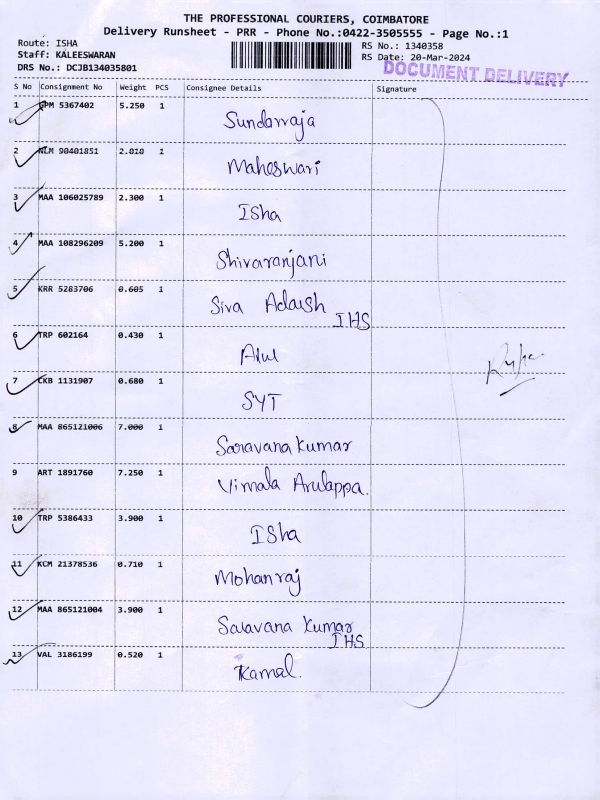 THE PROFESSIONAL COURIERS, COIMBATORE
Delivery Runsheet - PRR - Phone No.:0422-3505555 - Page No.:1
Route: ISHA
Staff: KALEESWARAN
DRS No.: DCJB134035801
RS No.: 1340358
RS Date: 20-Mar-2024
DOCUMENT DELIVERY
S No Consignment No Weight PCS Consignee Details Signature
1 5367402 5.250 1 Sundarraja
2 90401851 2.010 1 Maheswari
3 MAA 106025789 2.300 1 Isha
4 MAA 108296209 5.200 1 Shivaranjani
5 KRR 5283706 0.605 1 Siva Adarsh IHS
6 TRP 602164 0.430 1 Atul
7 CKB 1131907 0.680 1 SYT
8 MAA 865121006 7.000 1 Saravana Kumar
9 ART 1891760 7.250 1 Vimala Arulappa.
10 TRP 5386433 3.900 1 Isha
11 KCM 21378536 0.710 1 Mohanraj
12 MAA 865121004 3.900 1 Saravana Kumar IHS
13 VAL 3186199 0.520 1 Kamal.